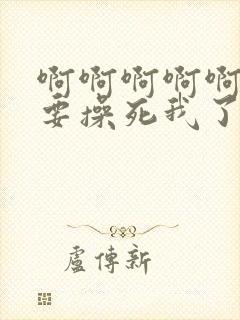 啊啊啊啊啊
要操死我了
盧傳新